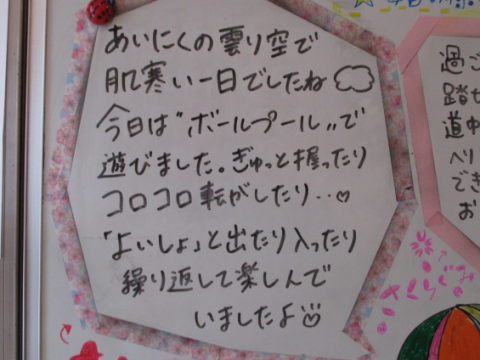 あいにくの雲り空で
肌寒い一日でしたね
今日は〝ボールプール〟で
遊びました。ぎゅっと握ったり
コロコロ転がしたり‥♡
「よいしょ」と出たり入ったり
繰り返して楽しんで
いましたよ
過ご
踏せ
道中
ベリ
でき
お
さくらぐみ